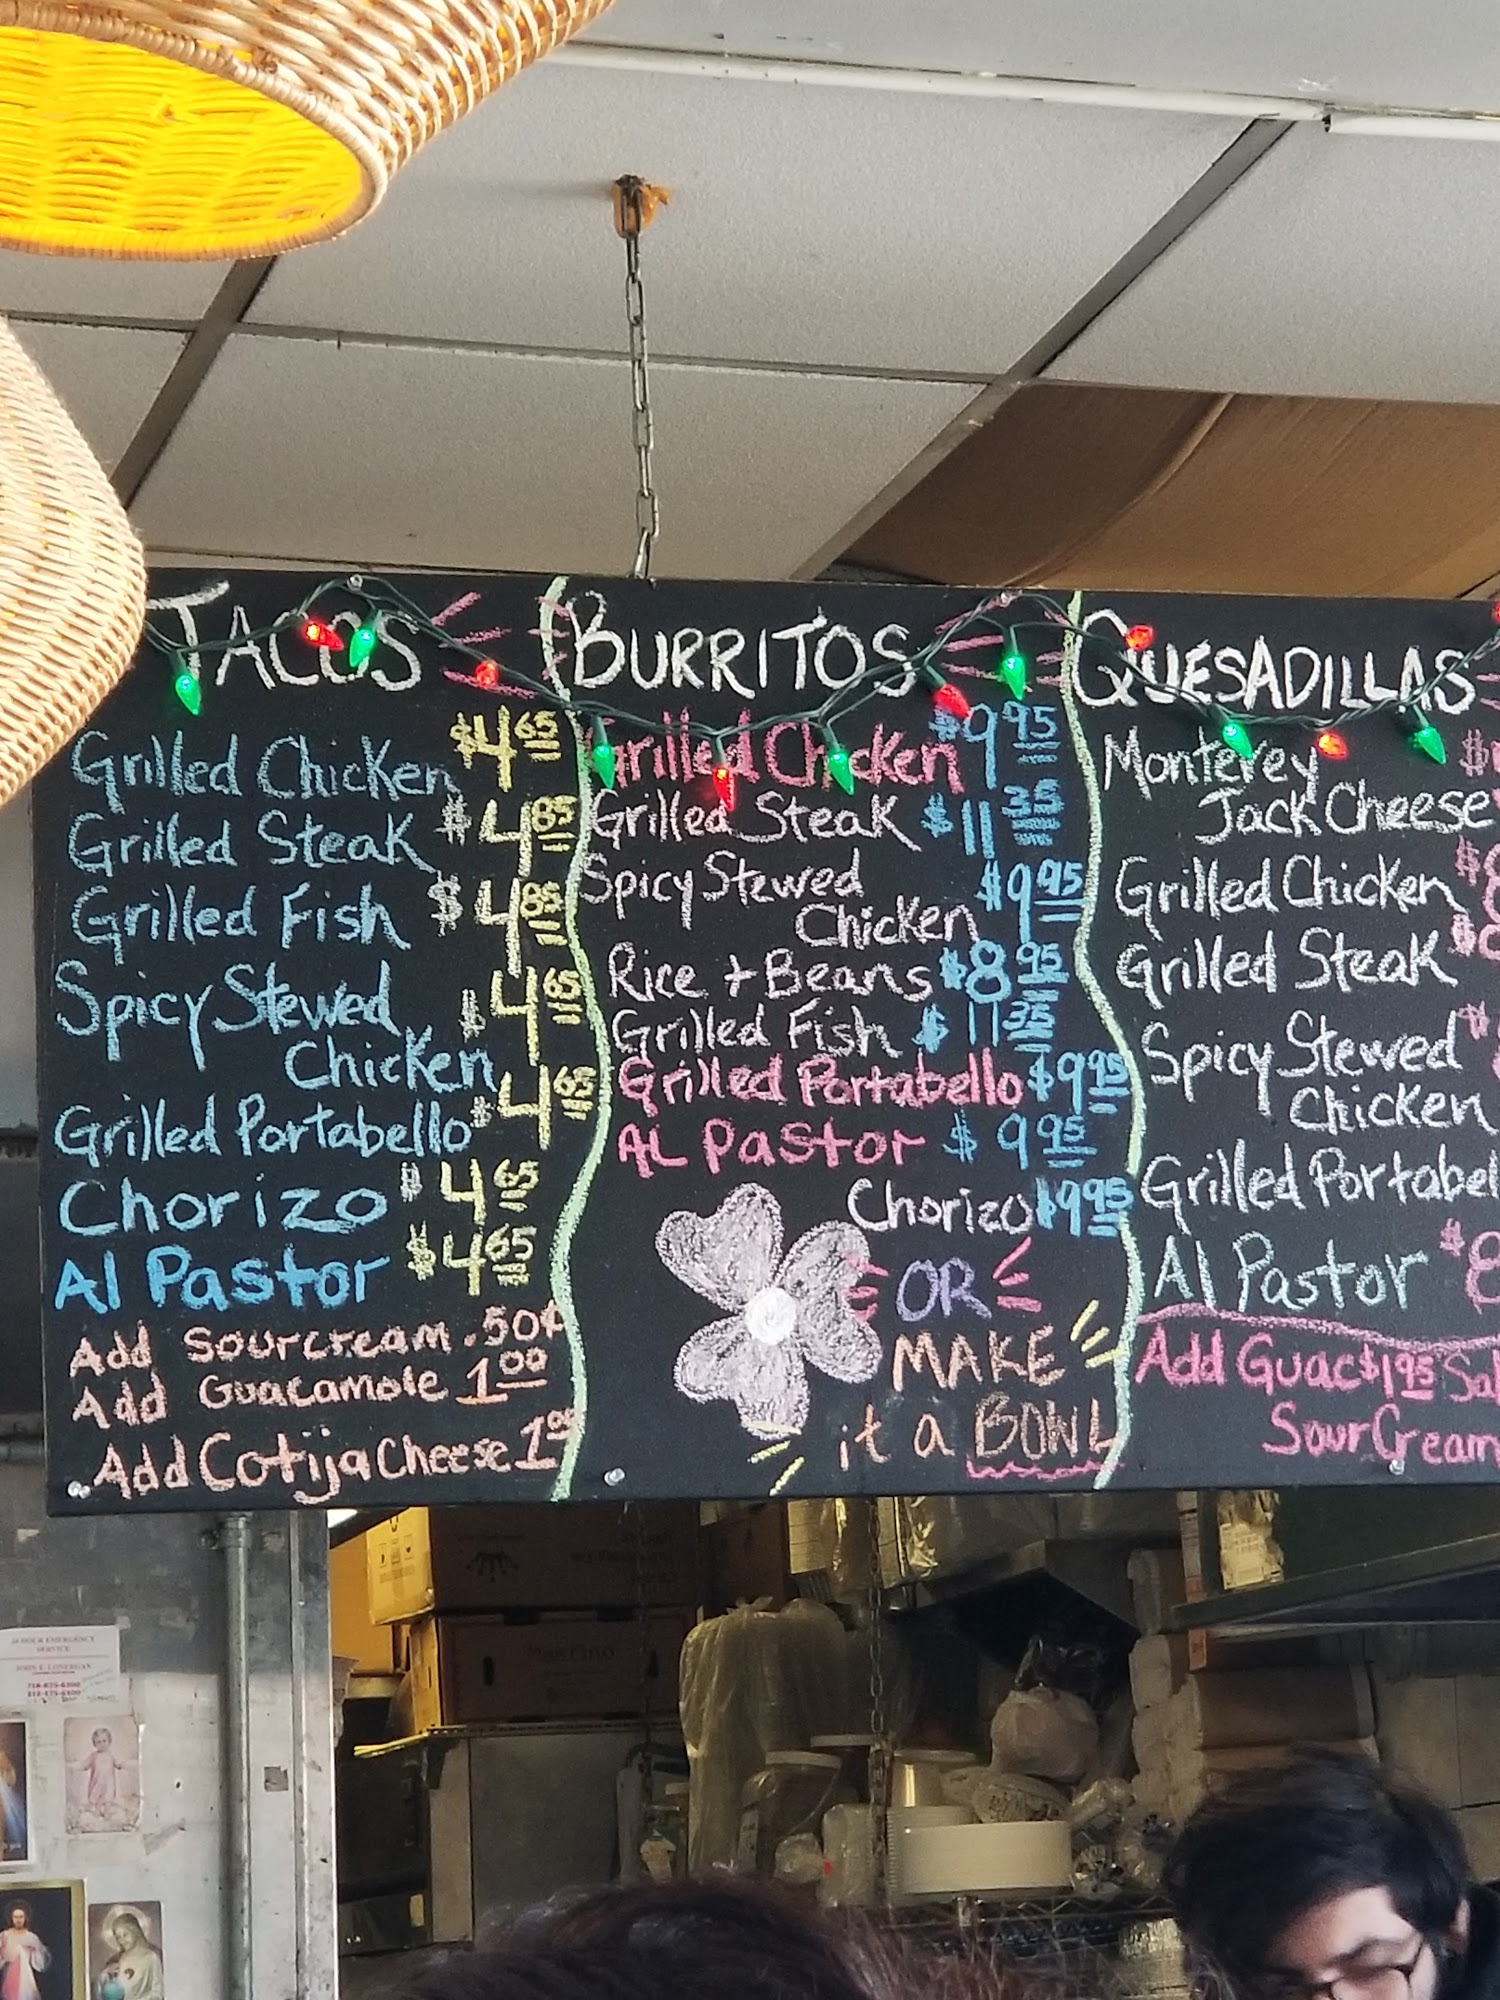 TACOS
Grilled Chicken $4.65
Grilled Steak $4.85
Grilled Fish $4.85
Spicy Stewed $4.65
Chicken
Grilled Portabello $4.65
Chorizo $4.65
Al Pastor $4.65
Add Sourcream .50¢
Add Guacamole 1.00
Add Cotija Cheese 1.00
BURRITOS
Grilled Chicken $9.95
Grilled Steak $11.35
Spicy Stewed $9.95
Chicken
Rice + Beans $8.95
Grilled Fish $11.35
Grilled Portabello $9.95
AL Pastor $9.95
Chorizo $9.95
OR
MAKE
it a BOWL
QUESADILLAS
Monterey $
Jack Cheese
Grilled Chicken $
Grilled Steak $
Spicy Stewed $
Chicken
Grilled Portabel
Al Pastor $8
Add Guac $1.95 Sal
Sour Cream
24 HOUR EMERGENCY
SERVICE
JOHN E. LONERGAN